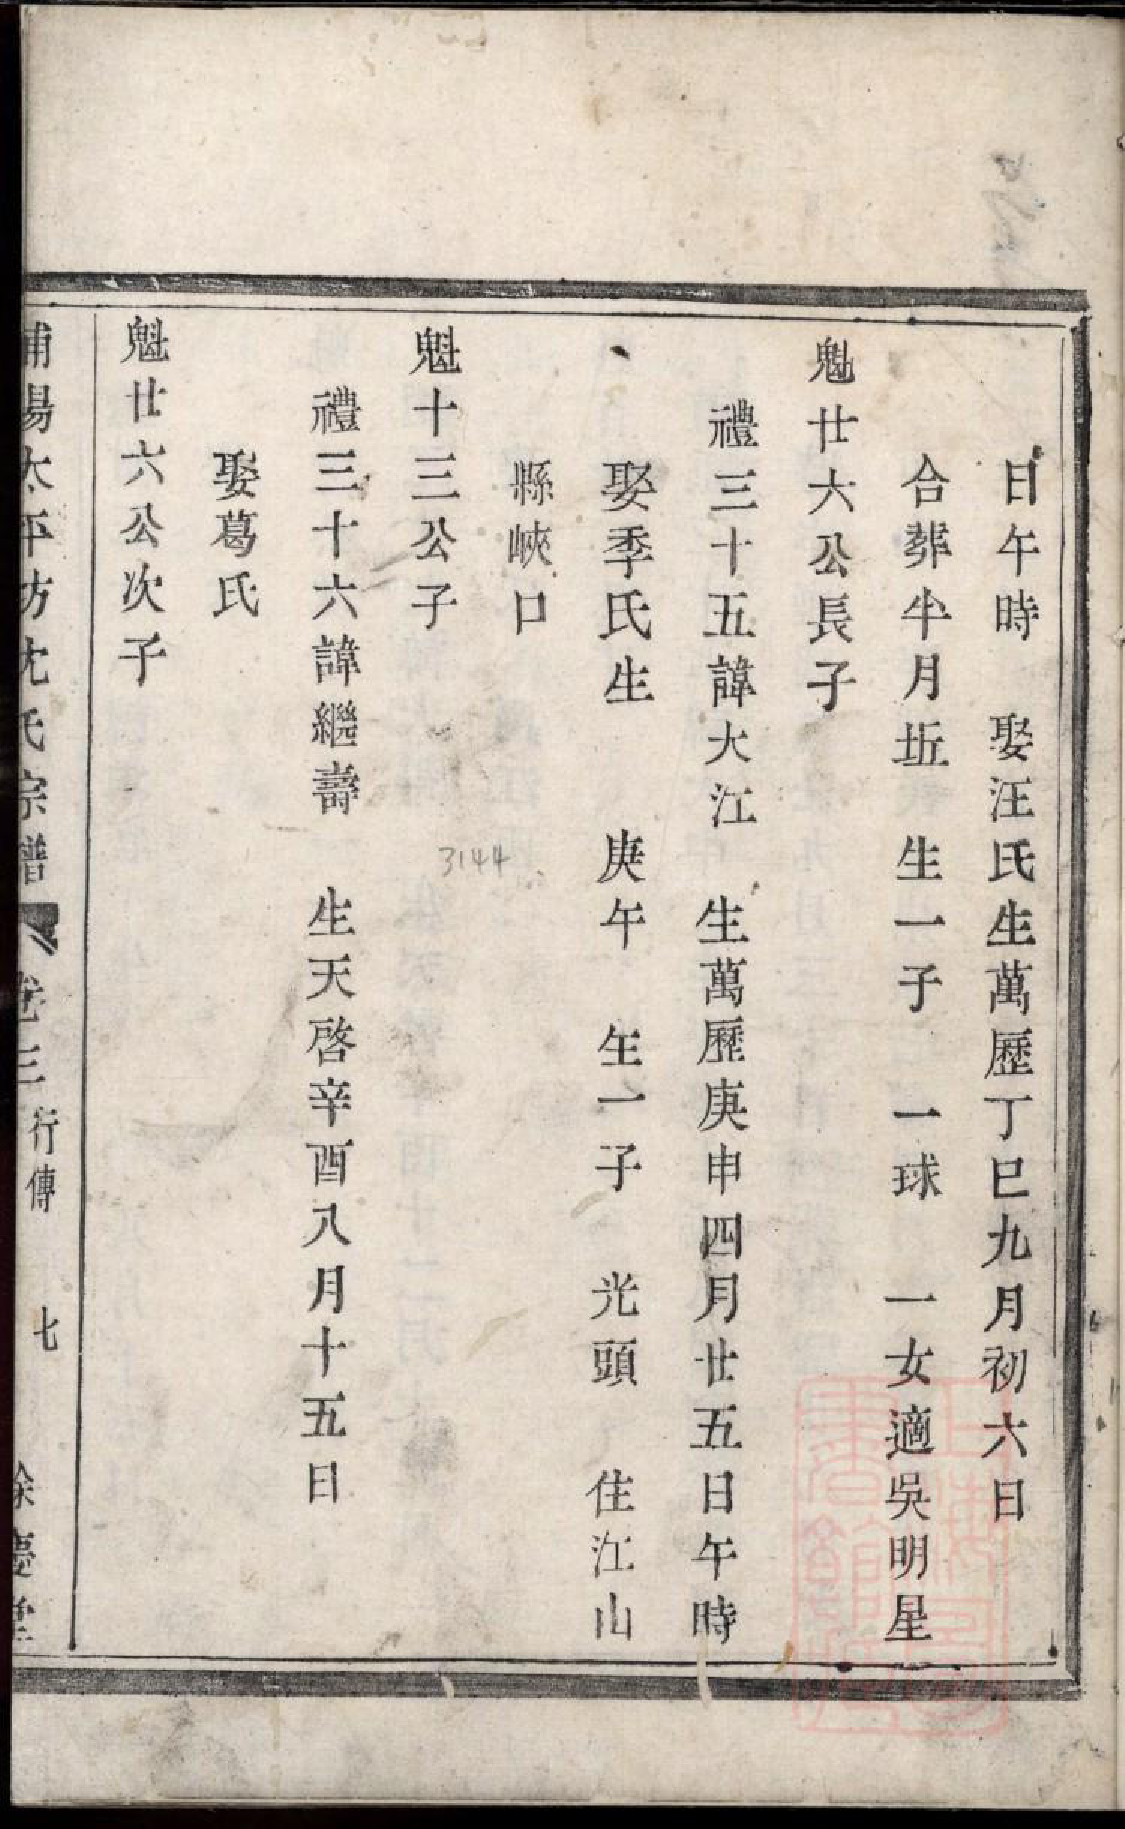 日午時 娶汪氏生萬歷丁巳九月初六日
合葬半月坵 生一子 一球 一女適吳明星
魁廿六公長子
禮三十五諱大江 生萬歷庚申四月廿五日午時
娶季氏生 庚午 生一子 光頭 住江山
縣峽口
魁十三公子
3144
禮三十六諱繼壽 生天啓辛酉八月十五日
娶葛氏
魁廿六公次子
浦陽太平坊沈氏宗譜 卷三 行傳 七 餘慶堂
上海圖書館藏